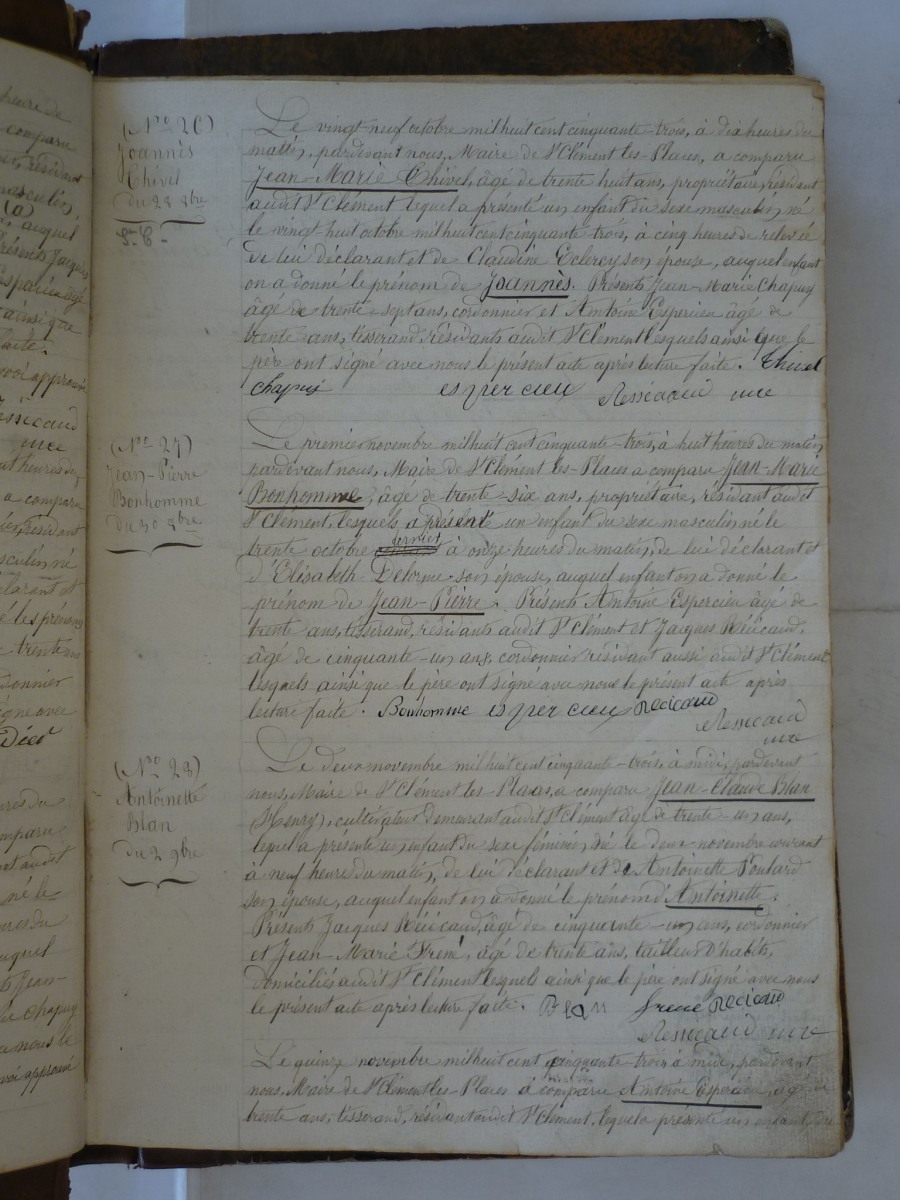 (N° 26)
Joannès
Thivel
du 28 8bre
Le vingt neuf octobre mil huit cent cinquante trois, à dix heures du
matin, pardevant nous, Maire de St Clément les Places, a comparu
Jean-Marie Thivel, âgé de trente huit ans, propriétaire, résidant
audit St Clément lequel a présenté un enfant du sexe masculin né
le vingt huit octobre mil huit cent cinquante trois, à cinq heures de relevée
de lui déclarant et de Claudine Eclercy son épouse, auquel enfant
on a donné le prénom de Joannès. Présents Jean-Marie Chapuy
âgé de trente-sept ans, cordonnier et Antoine Espercieu âgé de
trente ans, tisserand, résidants audit St Clément lesquels ainsi que le
père ont signé avec nous le présent acte après lecture faite. Thivel
Chapuis espercieu Ressicaud mre
(N° 27)
Jean-Pierre
Bonhomme
du 30 8bre
Le premier novembre mil huit cent cinquante-trois, à huit heures du matin,
pardevant nous, Maire de St Clément les-Places a comparu Jean-Marie
Bonhomme, âgé de trente-six ans, propriétaire, résidant audit
St Clément, lesquels a présenté un enfant du sexe masculin, né le
trente octobre dernier à onze heures du matin, de lui déclarant et
d'Elisabeth Delorme son épouse, auquel enfant on a donné le
prénom de Jean-Pierre. Présents Antoine Espercieu âgé de
trente ans, tisserand, résidants audit St Clément et Jacques
âgé de cinquante-un ans, cordonnier résidant aussi audit St Clément
lesquels ainsi que le père ont signé avec nous le présent acte après
lecture faite. Bonhomme espercieu
Ressicaud
mre
(N° 28)
Antoinette
Blan
du 2 9bre
Le deux novembre mil huit cent cinquante-trois, à midi, pardevant
nous, Maire de St Clément les-Places, a comparu Jean-Claude Blan
(Henry), cultivateur demeurant audit St Clément âgé de trente-un ans,
lequel a présenté un enfant du sexe féminin, né le deux novembre courant
à neuf heures du matin, de lui déclarant et de Antoinette
son épouse, auquel enfant on a donné le prénom d'Antoinette.
Présents Jacques âgé de cinquante-un ans, cordonnier
et Jean-Marie Frené, âgé de trente ans, tailleur d'habits,
domiciliés audit St Clément lesquels ainsi que le père ont signé avec nous
le présent acte après lecture faite. Blan frené
Ressicaud mre
Le quinze novembre mil huit cent cinquante-trois à midi, pardevant
nous, Maire de St Clément les-Places a comparu Antoine Espercieu, âgé de
trente ans, tisserand, résidant audit St Clément, lequel a présenté un enfant du